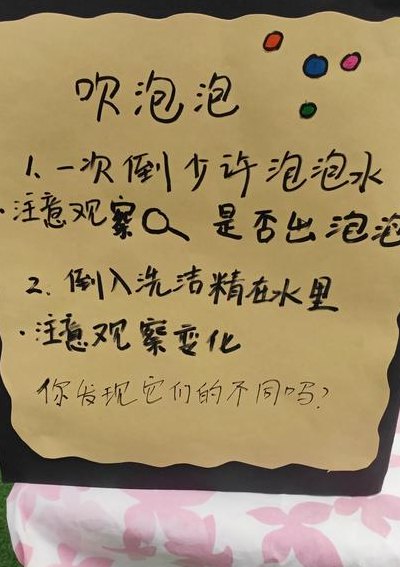 吹泡泡
1. 一次倒少许泡泡水
·注意观察 是否出泡泡
2. 倒入洗洁精在水里
·注意观察变化
你发现它们的不同吗?